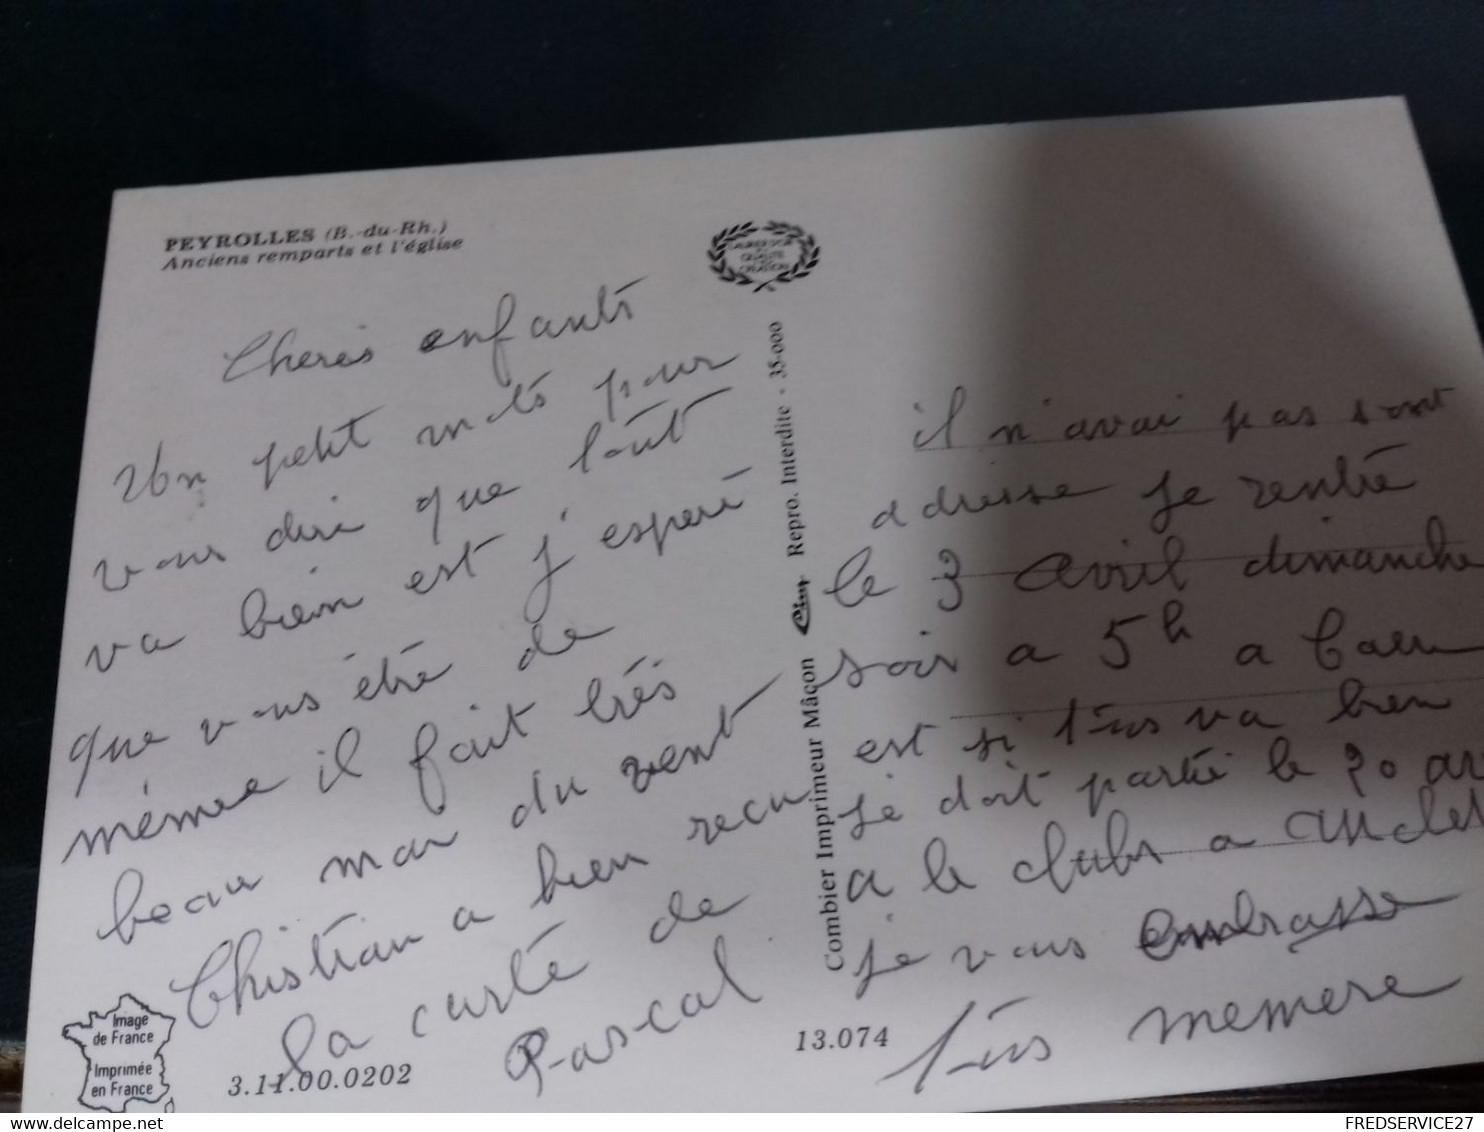 PEYROLLES (B.-du-Rh.)
Anciens remparts et l'église
Cheris enfants
Un petit mots pour
vous dire que tout
va bien est j'esperé
que vous été de
mémee il fait trés
beau mai du vent
Christian a bien recu
la carté de
Pascal
Image
de France
Imprimée
en France
3.11.00.0202
QUALITÉ
CRÉATION
Combier Imprimeur Mâcon Cim Repro. Interdite - 35-000
il n'avai pas sont
adresse je rentré
le 3 avril dimanche
soir a 5h a Caen
est si tous va bien
je doit partir le 20 av
a le clubs a
je vous embrasse
tous memere
13.074
FREDSERVICE27